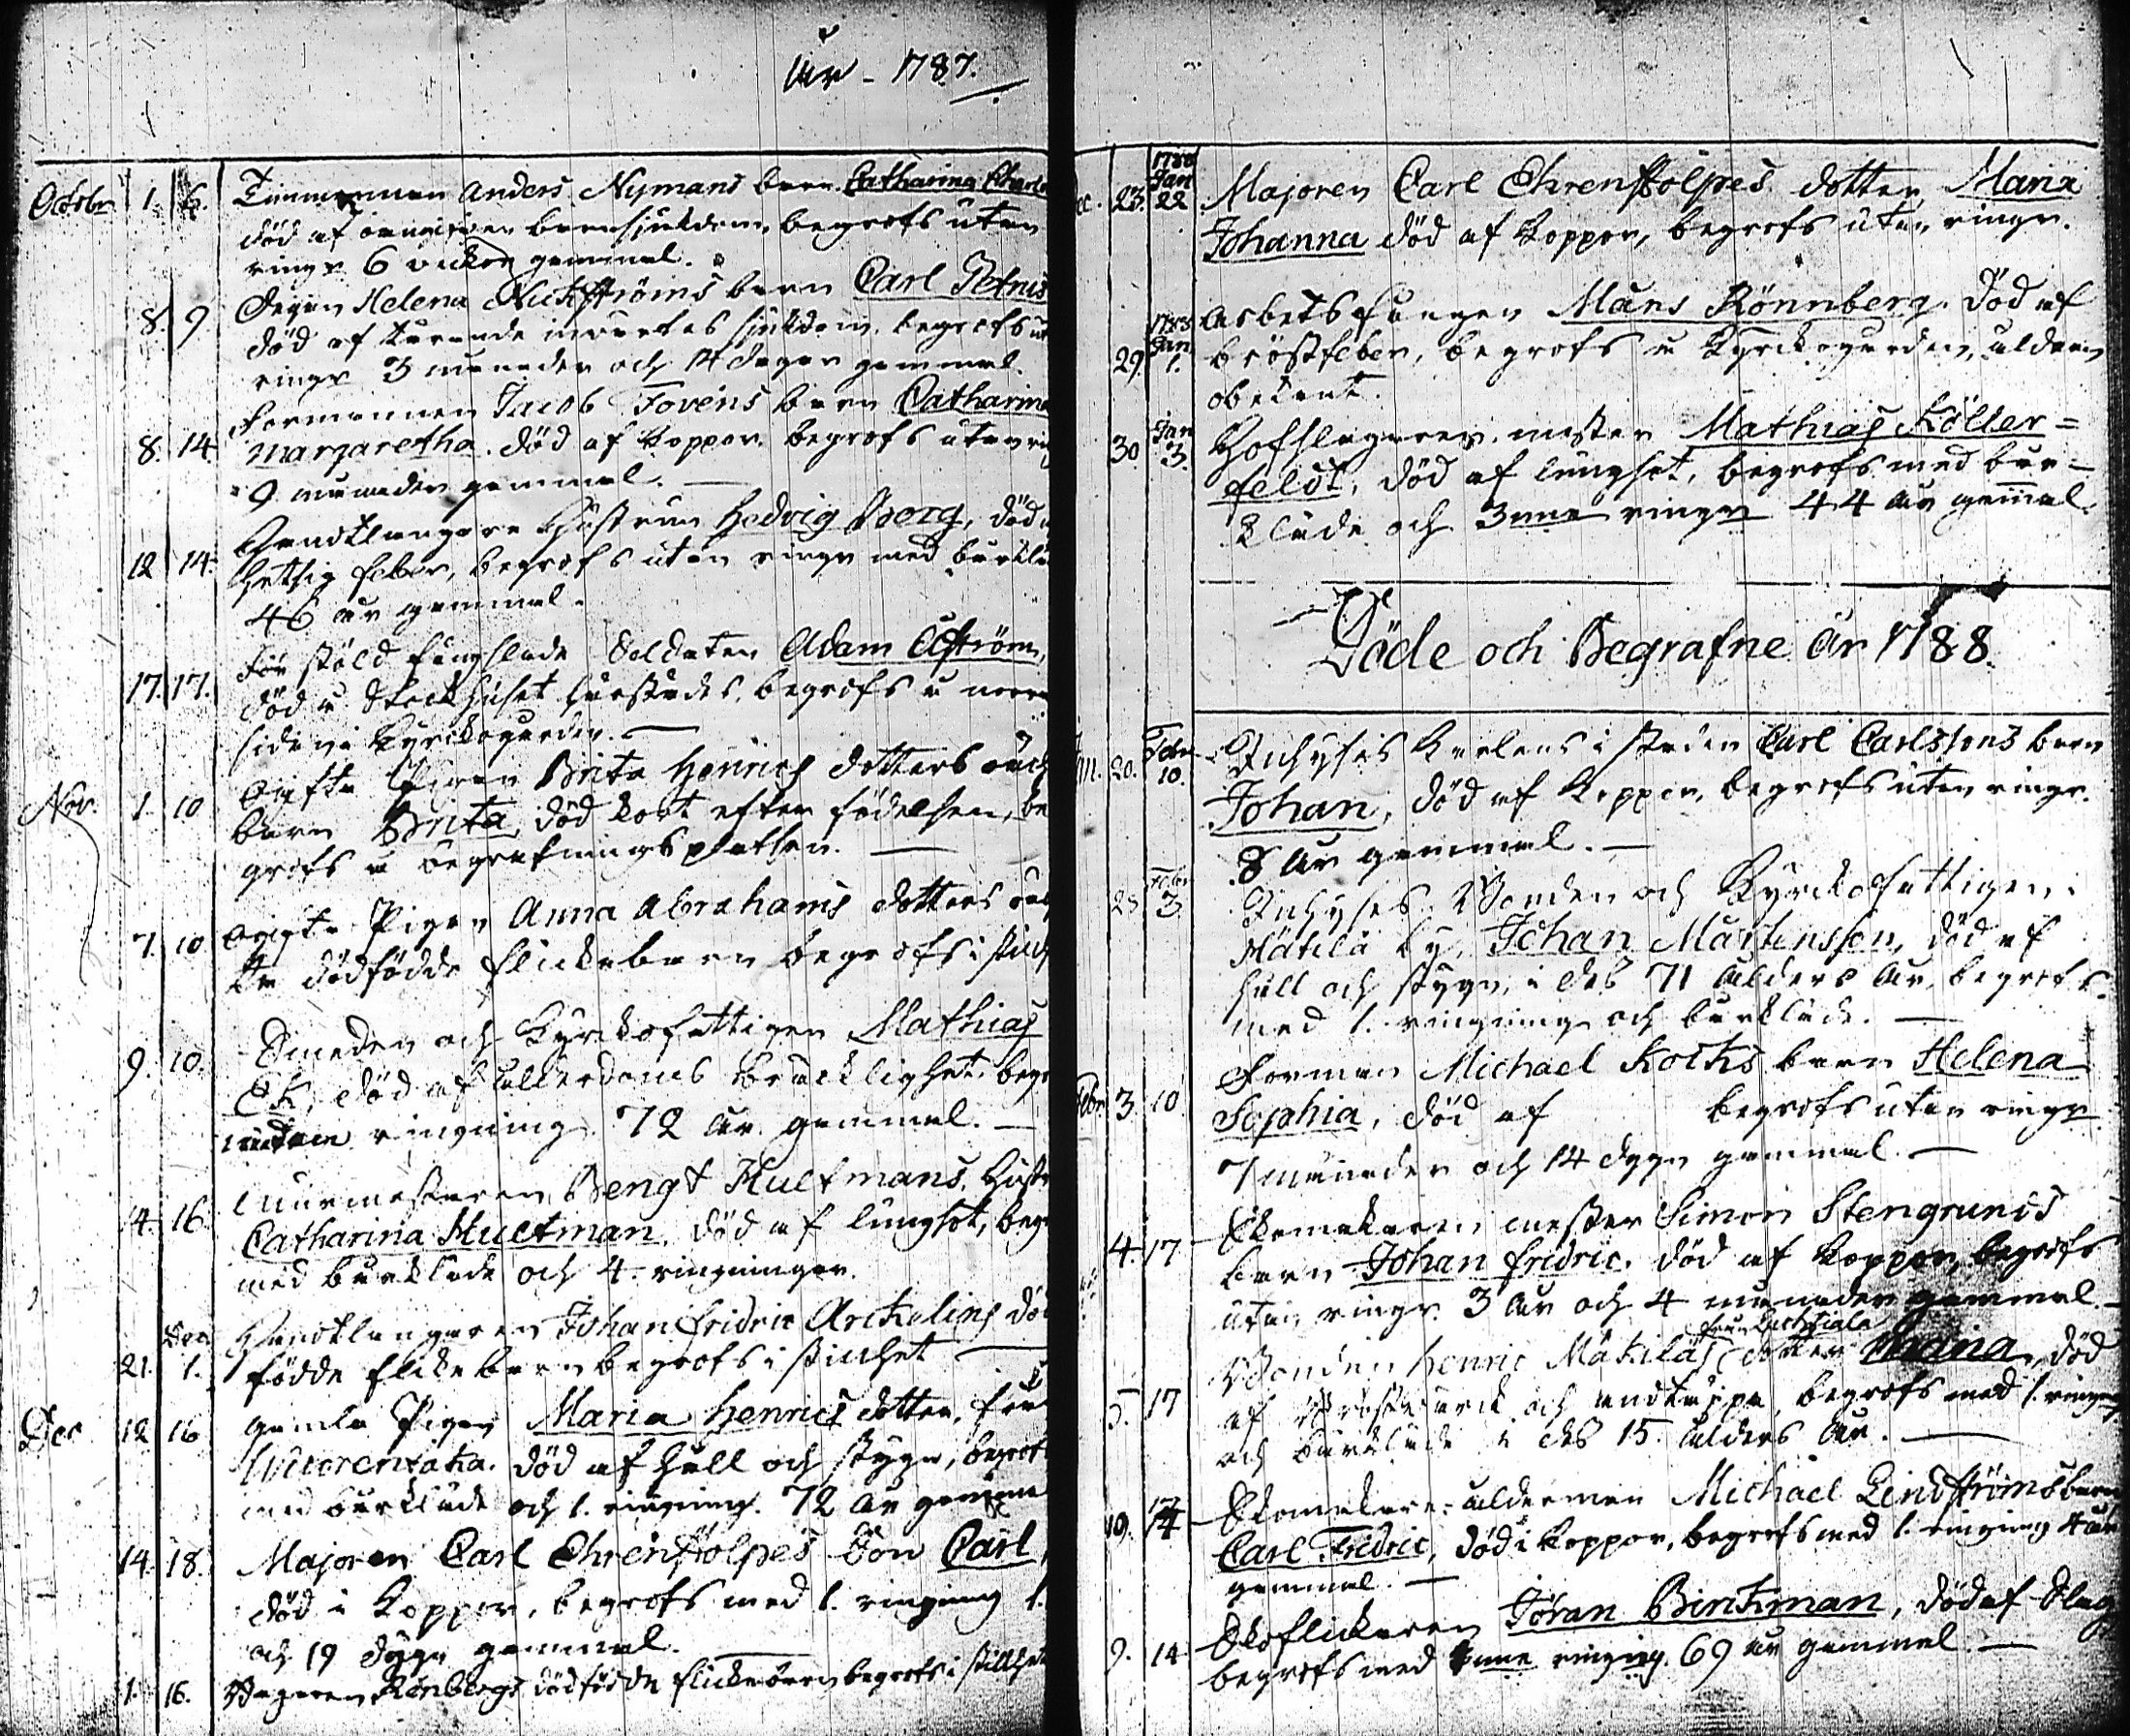 År - 1787.
Octobr 1. 6. Timmerman Anders Nymans barn Catharina
död af barnsjukdom, begrofs utan
ringn 6 veckor gammal.
8. 9 Pigan Helena barn Carl Petrus
död af invertes sjukdom, begrofs
ringn 3 månader och 14 dagar gammal.
Formannen Jacob Tovens barn Catharina
8. 14 Margaretha. död af koppor. begrofs utan
9 månader gammal.
Handtlangare Hustrun Hedvig Borg, död
12 14. hetsig feber, begrofs utan ringn med bårkläde
46 år gammal.
För stöld fängslade Soldaten Adam Åström,
17. 17. död å Stockhuset härstädes, begrofs å norra
sidan i Kyrckogården.
Ogifta Pigan Brita Henrics dotters
Nov. 1. 10 barn Brita, död kort efter födelsen, be
grofs å begrafningsplatsen.
7. 10 Ogifta Pigan Anna Abrahams dotters
dödfödde flickebarn begrofs i
Smeden och Kyrckofattigen Mathias
9. 10. Ek, död af ålderdoms bräcklighet,
ringning 72 år gammal.
Murmestaren Bengt Hultmans
14. 16 Catharina Hultman, död af lungsot,
med bårkläde och 4. ringningar.
Dec Handtlangaren Johan Fridric Arckelins
21. 1. födde flickebarn begrofs i stillhet
Dec 12 16 gamla Pigan Maria Henrics dotter, från
död af håll och stygn,
med bårkläde och 1. ringning. 72 år gammal
14. 18. Majoren Carl Ehrenstolpes Son Carl,
död i koppor, begrofs med 1. ringning 1.
och 19 dygn gammal.
1. 16. Rönbergs dödfödde flickebarn begrofs i stillhet
1788
Jan
23. 22 Majoren Carl Ehrenstolpes dotter Maria
Johanna död af koppor, begrofs utan ringn.
1788 Arbetsfången Måns Rönnberg. död af
29. Jan 1. bröstfeber, begrofs å Kyrckogården, åldern
obekant.
30 Jan 3. Hofslagaren mester Mathias Köller=
feldt, död af lungsot, begrofs med bår-
kläde och 3nne ringn 44 år gammal
Döde och Begrafne År 1788.
20. Febr 10. Inhyses Karlens i staden Carl Carlssons barn
Johan, död af koppor, begrofs utan ringn.
8 år gammal.
Febr 3 Inhyses Bonden och Kyrckofattigen i
Mätilä by, Johan Mårtensson, död af
håll och stygn, i des 71 ålders år, begrofs
med 1. ringning och bårkläde.
Forman Michael Kocks barn Helena
Febr. 3. 10 Sophia, död af begrofs utan ringn
7 månader och 14 dygn gammal.
Skomakaren mester Simon Stengrunds
4. 17 barn Johan Fridric. död af koppor, begrofs
utan ringn. 3 år och 4 månader gammal.
Bonden Henric Mätiläs dotter död
5. 17 af och andtäppa, begrofs med 1. ringning
och bårkläde i des 15. ålders år.
Skomakare-åldermen Michael Lindströms barn
9. Carl Fredric, död i koppor, begrofs med 1. ringning 4 år
gammal.
Skoflickaren Jöran Brinkman, död af Slag
9. 14 begrofs med ringning. 69 år gammal.